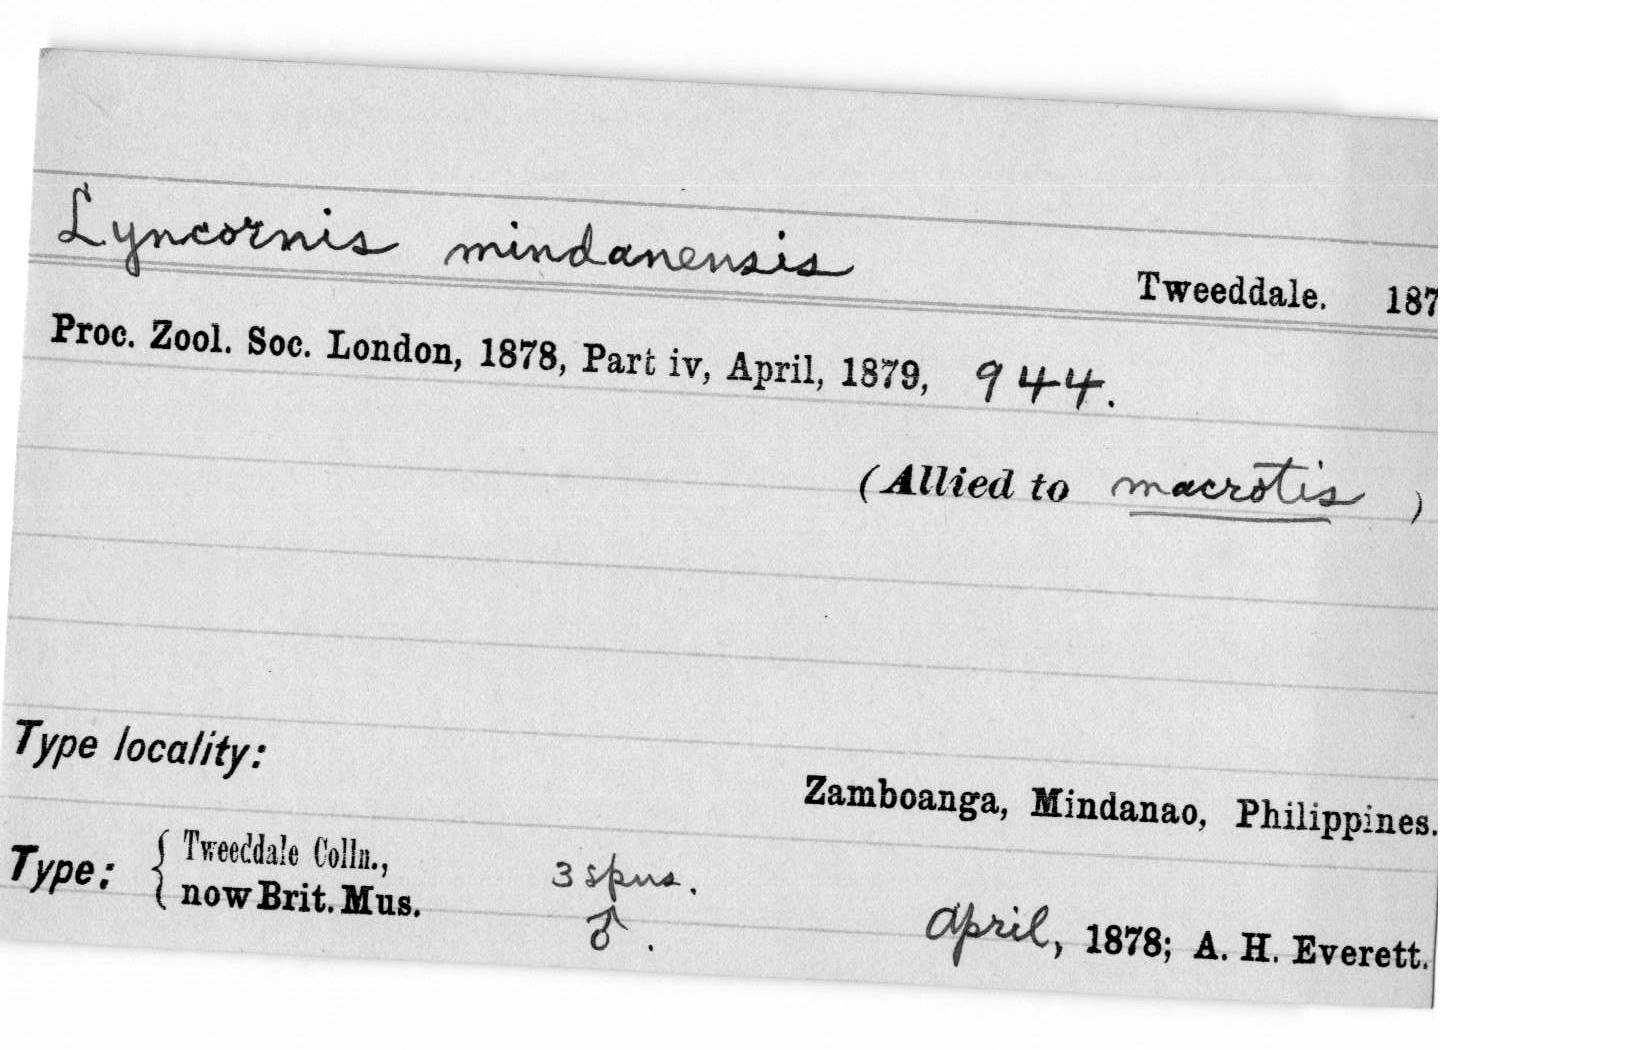 Lyncornis mindanensis Tweeddale. 187
Proc. Zool. Soc. London, 1878, Part iv, April, 1879, 944.
(Allied to macrotis )
Type locality:
Zamboanga, Mindanao, Philippines.
Type: { Tweeddale Colln., 3 spns.
now Brit. Mus. ♂. April, 1878; A. H. Everett.